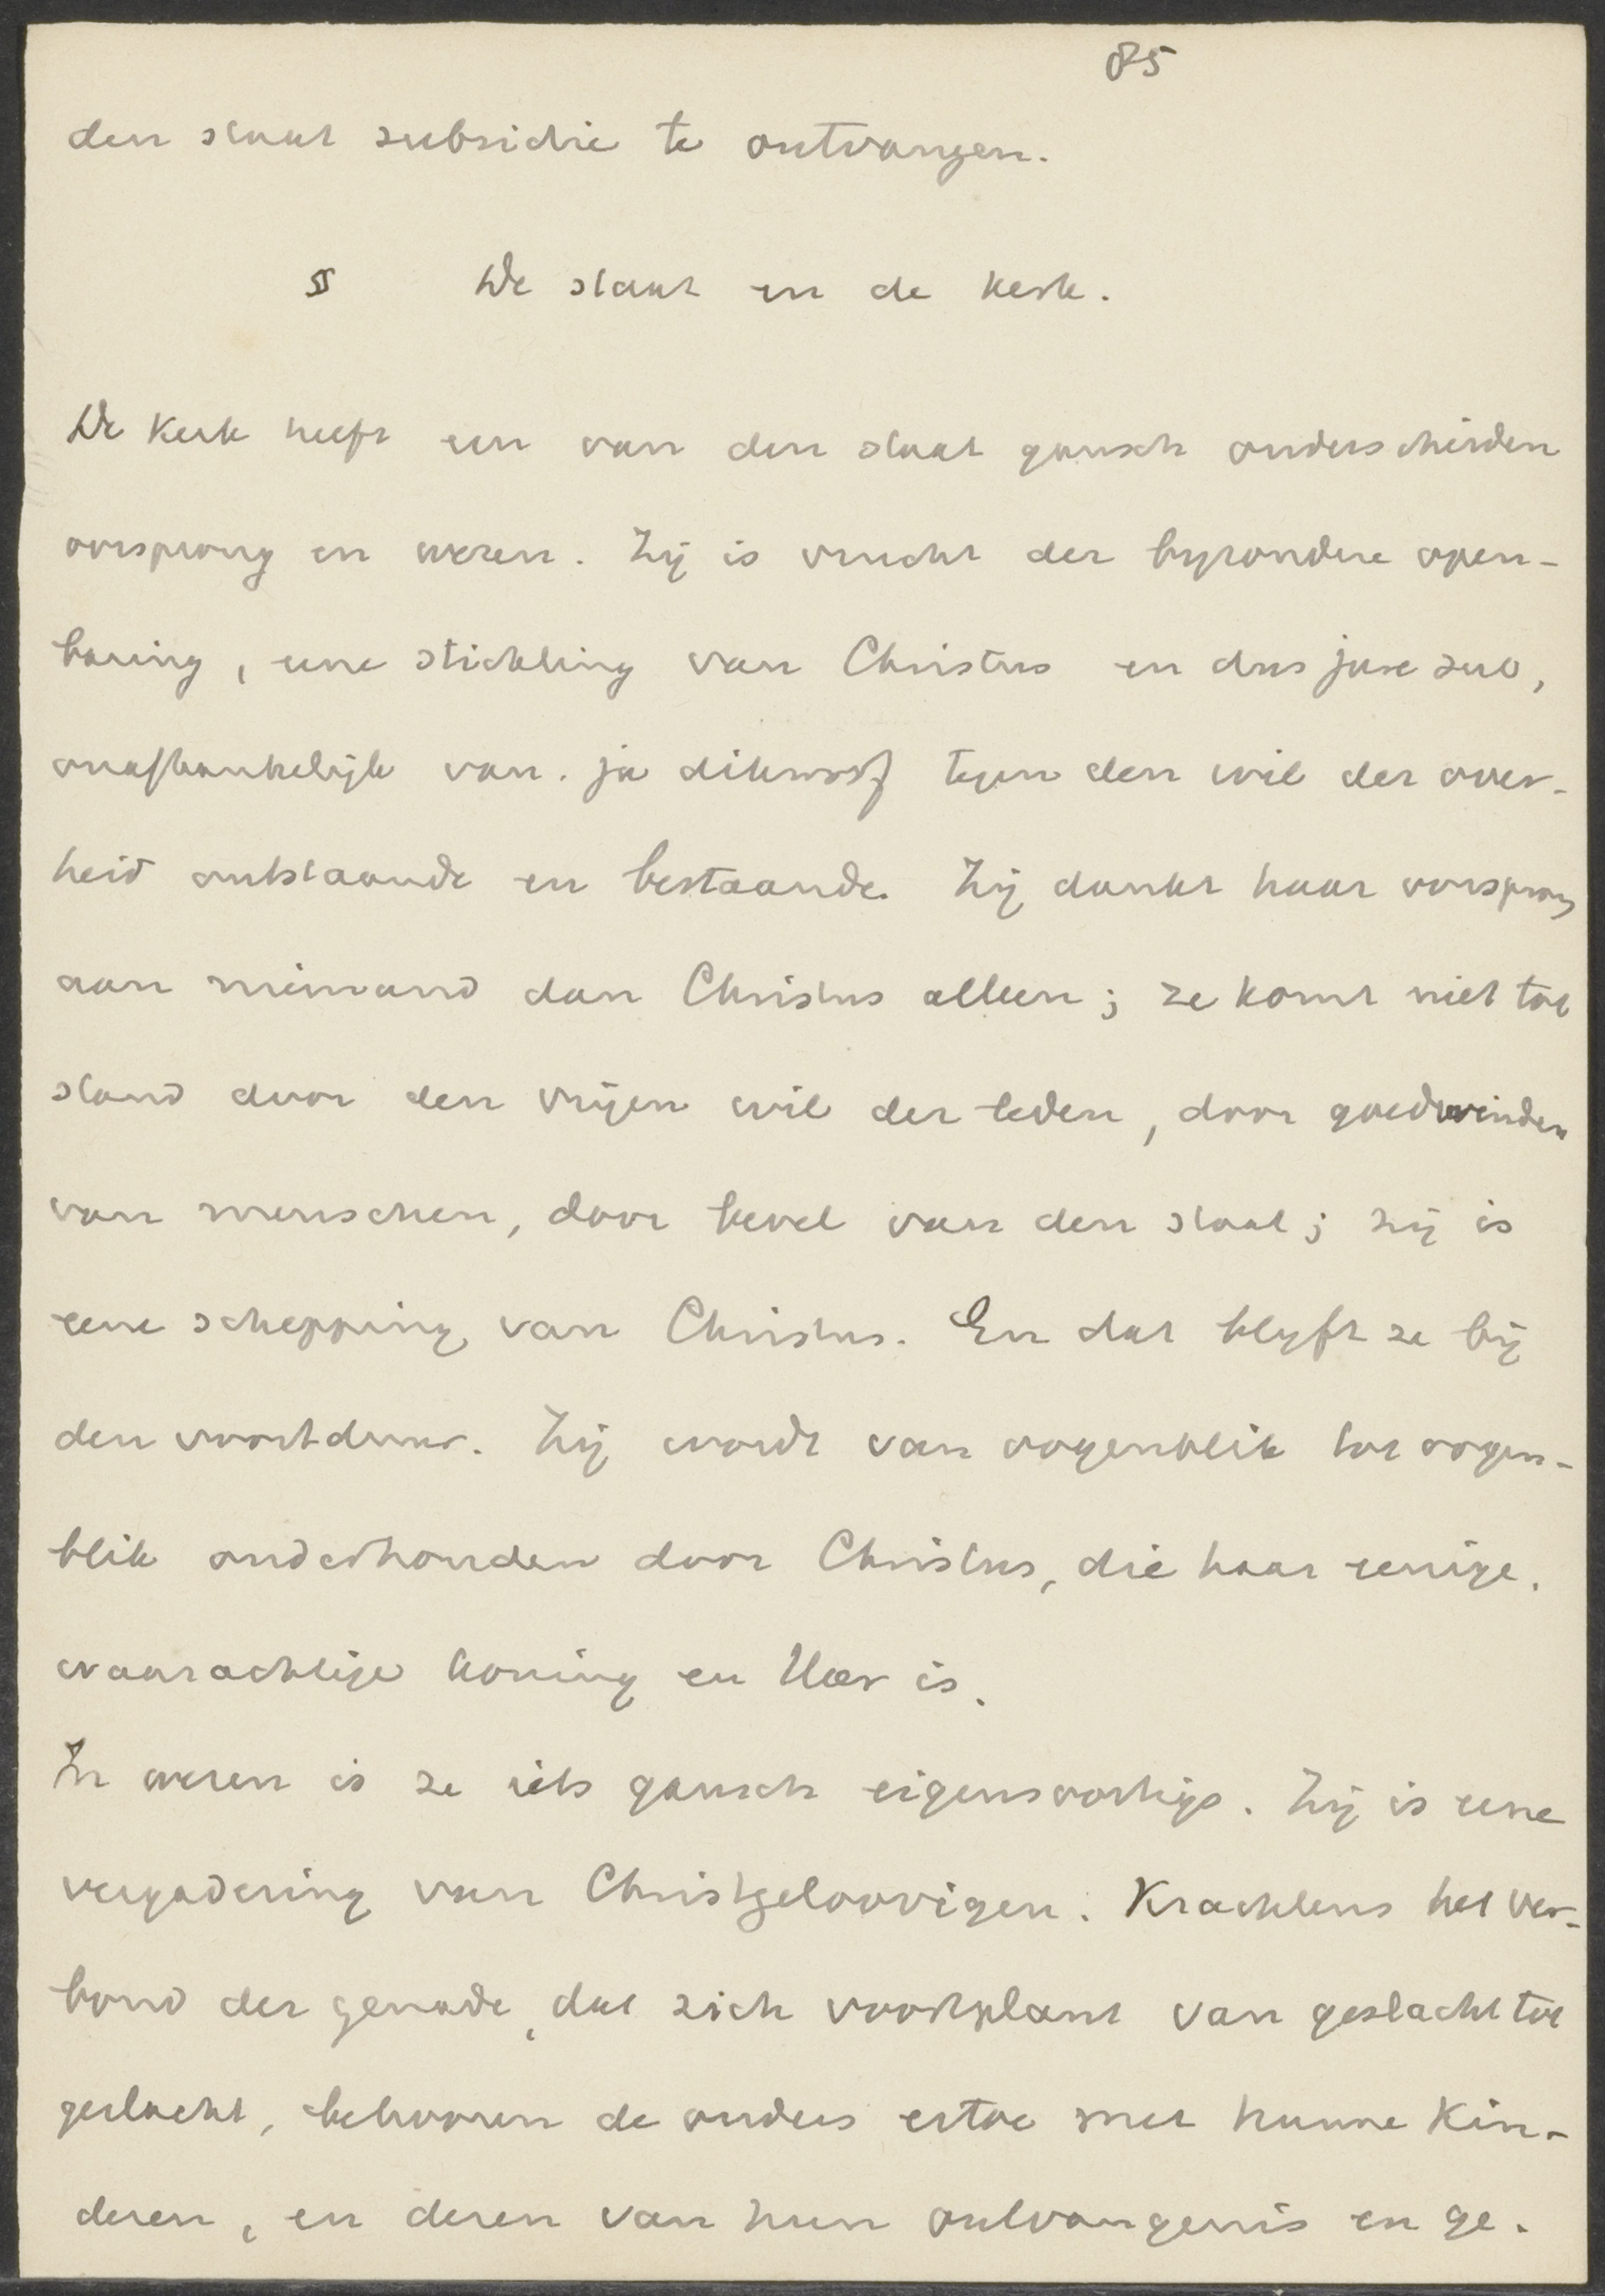 85
den staat subsidie te ontvangen.
§ De staat en de kerk.
De Kerk heeft een van den staat gansch onderscheiden
oorsprong en wezen. Zij is vrucht der byzondere open-
baring, eene stichting van Christus en dus jure suo,
onafhankelijk van. ja dikwerf tegen den wil der over-
heid ontstaande en bestaande. Zij dankt haar oorsprong
aan niemand dan Christus alleen; ze komt niet tot
stand door den vrijen wil der leden, door goedvinden
van menschen, door bevel van den staat; zij is
eene schepping van Christus. En dat blyft ze bij
den voortduur. Zij wordt van oogenblik tot oogen-
blik onderhouden door Christus, die haar eenige,
waarachtige koning en Heer is.
In wezen is ze iets gansch eigensoortigs. Zij is eene
vergadering van Christgeloovigen. Krachtens het ver-
bond der genade, dat zich voortplant van geslacht tot
geslacht, behooren de ouders ertoe met hunne Kin-
deren, en deren van hun ontvangenis en ge-